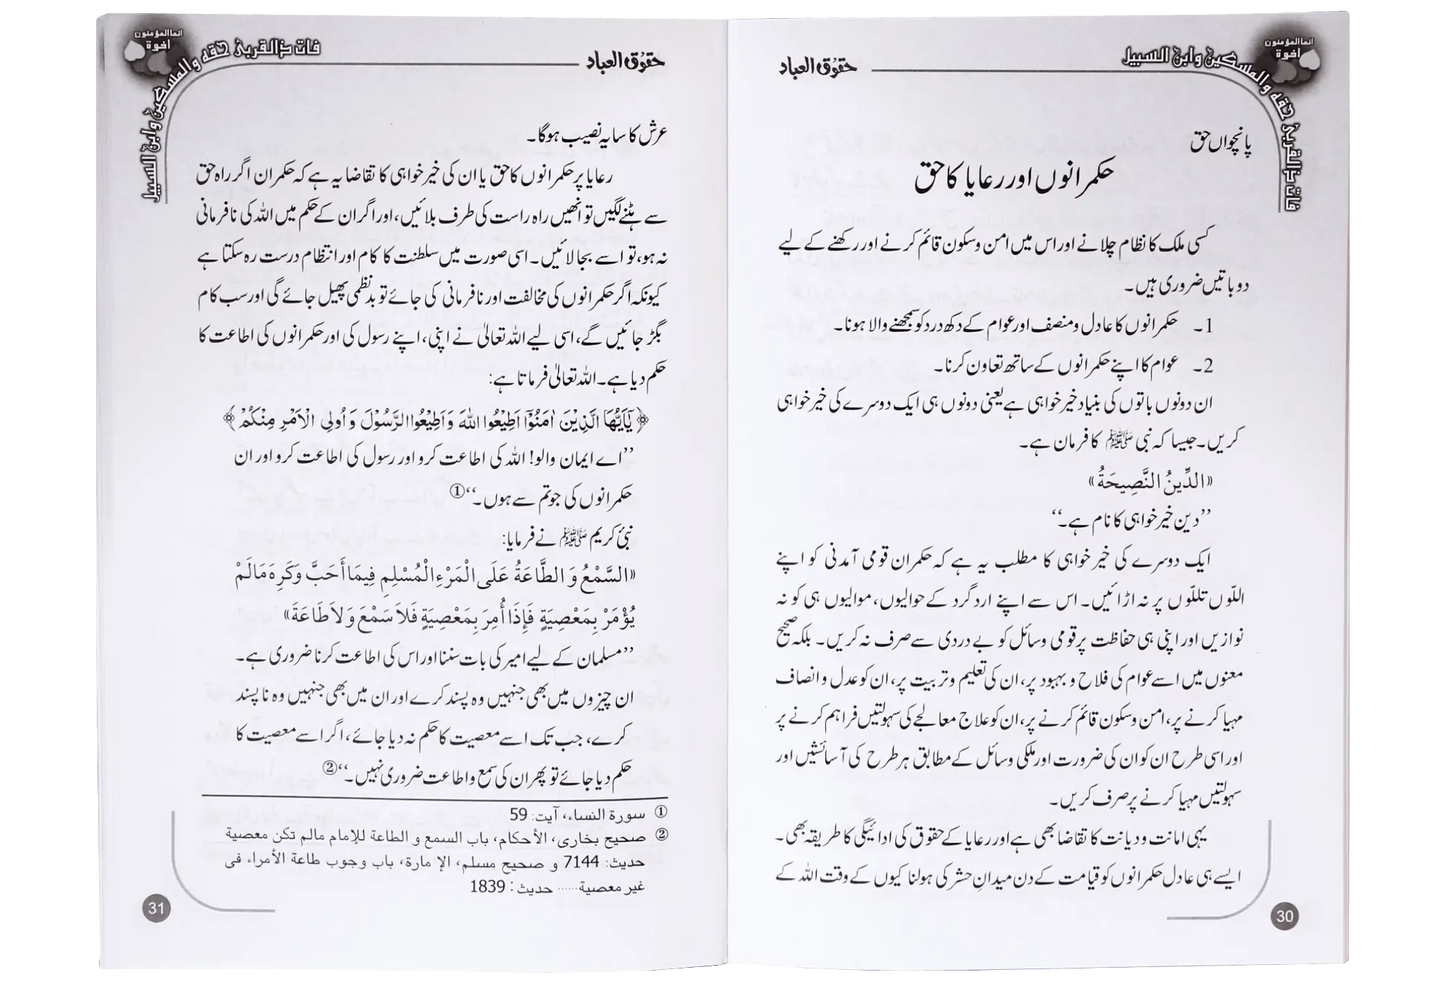 حقوق العباد
فات ذالقربىٰ حقه والمسكين وابن السبيل
انما المؤمنون
اخوة
پانچواں حق
حکمرانوں اور رعایا کا حق
کسی ملک کا نظام چلانے اور اس میں امن و سکون قائم کرنے اور رکھنے کے لیے
دو باتیں ضروری ہیں۔
1۔ حکمرانوں کا عادل و منصف اور عوام کے دکھ درد کو سمجھنے والا ہونا۔
2۔ عوام کا اپنے حکمرانوں کے ساتھ تعاون کرنا۔
ان دونوں باتوں کی بنیاد خیر خواہی ہے یعنی دونوں ہی ایک دوسرے کی خیر خواہی
کریں۔ جیسا کہ نبی ﷺ کا فرمان ہے۔
«الدِّينُ النَّصِيحَةُ»
’’دین خیر خواہی کا نام ہے۔‘‘
ایک دوسرے کی خیر خواہی کا مطلب یہ ہے کہ حکمران قومی آمدنی کو اپنے
اللّوں تللّوں پر نہ اڑائیں۔ اس سے اپنے ارد گرد کے حوالیوں، موالیوں ہی کو نہ
نوازیں اور اپنی ہی حفاظت پر قومی وسائل کو بے دردی سے صرف نہ کریں۔ بلکہ صحیح
معنوں میں اسے عوام کی فلاح و بہبود پر، ان کی تعلیم و تربیت پر، ان کو عدل و انصاف
مہیا کرنے پر، امن و سکون قائم کرنے پر، ان کو علاج معالجے کی سہولتیں فراہم کرنے پر
اور اسی طرح ان کو ان کی ضرورت اور ملکی وسائل کے مطابق ہر طرح کی آسائشیں اور
سہولتیں مہیا کرنے پر صرف کریں۔
یہی امانت و دیانت کا تقاضا بھی ہے اور رعایا کے حقوق کی ادائیگی کا طریقہ بھی۔
ایسے ہی عادل حکمرانوں کو قیامت کے دن میدانِ حشر کی ہولناکیوں کے وقت اللہ کے
30
حقوق العباد
فات ذالقربىٰ حقه والمسكين وابن السبيل
انما المؤمنون
اخوة
عرش کا سایہ نصیب ہوگا۔
رعایا پر حکمرانوں کا حق یا ان کی خیر خواہی کا تقاضا یہ ہے کہ حکمران اگر راہ حق
سے ہٹنے لگیں تو انھیں راہ راست کی طرف بلائیں، اور اگر ان کے حکم میں اللہ کی نافرمانی
نہ ہو، تو اسے بجا لائیں۔ اسی صورت میں سلطنت کا کام اور انتظام درست رہ سکتا ہے
کیونکہ اگر حکمرانوں کی مخالفت اور نافرمانی کی جائے تو بدنظمی پھیل جائے گی اور سب کام
بگڑ جائیں گے، اسی لیے اللہ تعالیٰ نے اپنی، اپنے رسول کی اور حکمرانوں کی اطاعت کا
حکم دیا ہے۔ اللہ تعالیٰ فرماتا ہے:
﴿يٰۤاَيُّهَا الَّذِيْنَ اٰمَنُوْۤا اَطِيْعُوا اللّٰهَ وَاَطِيْعُوا الرَّسُوْلَ وَاُولِى الْاَمْرِ مِنْكُمْ﴾
’’اے ایمان والو! اللہ کی اطاعت کرو اور رسول کی اطاعت کرو اور ان
حکمرانوں کی جو تم سے ہوں۔‘‘①
نبی کریم ﷺ نے فرمایا:
«السَّمْعُ وَ الطَّاعَةُ عَلَى الْمَرْءِ الْمُسْلِمِ فِيمَا أَحَبَّ وَكَرِهَ مَالَمْ
يُؤْمَرْ بِمَعْصِيَةٍ فَإِذَا أُمِرَ بِمَعْصِيَةٍ فَلاَ سَمْعَ وَلاَ طَاعَةَ»
’’مسلمان کے لیے امیر کی بات سننا اور اس کی اطاعت کرنا ضروری ہے۔
ان چیزوں میں بھی جنہیں وہ پسند کرے اور ان میں بھی جنہیں وہ ناپسند
کرے، جب تک اسے معصیت کا حکم نہ دیا جائے، اگر اسے معصیت کا
حکم دیا جائے تو پھر ان کی سمع و اطاعت ضروری نہیں۔‘‘②
① سورة النساء، آیت: 59
② صحیح بخاری، الأحکام، باب السمع و الطاعة للإمام مالم تکن معصیة
حدیث: 7144 و صحیح مسلم، الإمارة، باب وجوب طاعة الأمراء فی
غیر معصیة...... حدیث: 1839
31